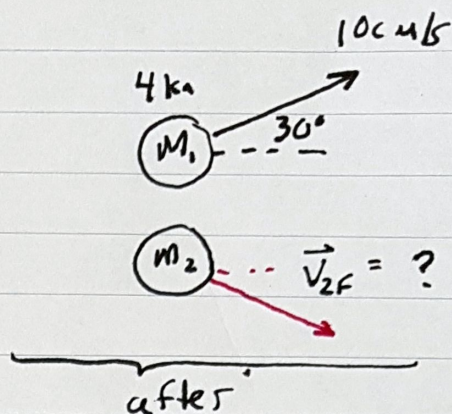 10cm/s
4 kg
M₁ 30°
m₂ V⃗₂F = ?
after